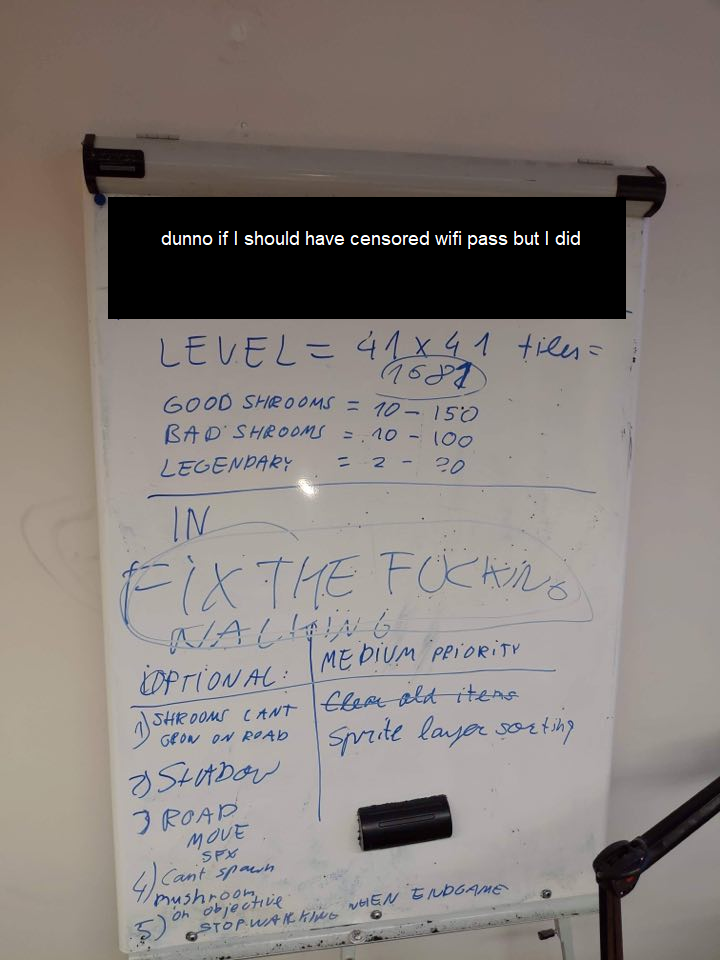 dunno if I should have censored wifi pass but I did
LEVEL = 41 x 41 tiles =
1681
GOOD SHROOMS = 10 - 150
BAD SHROOMS = 10 - 100
LEGENDARY = 2 - 20
IN
FIX THE FUCKING
WALKING
OPTIONAL:
1) SHROOMS CANT
GROW ON ROAD
2) SHADOW
3) ROAD
MOVE
SFX
4) Cant spawn
mushroom
on objective
5) STOP WALKING WHEN ENDGAME
MEDIUM PRIORITY
Clear old items
Sprite layer sorting